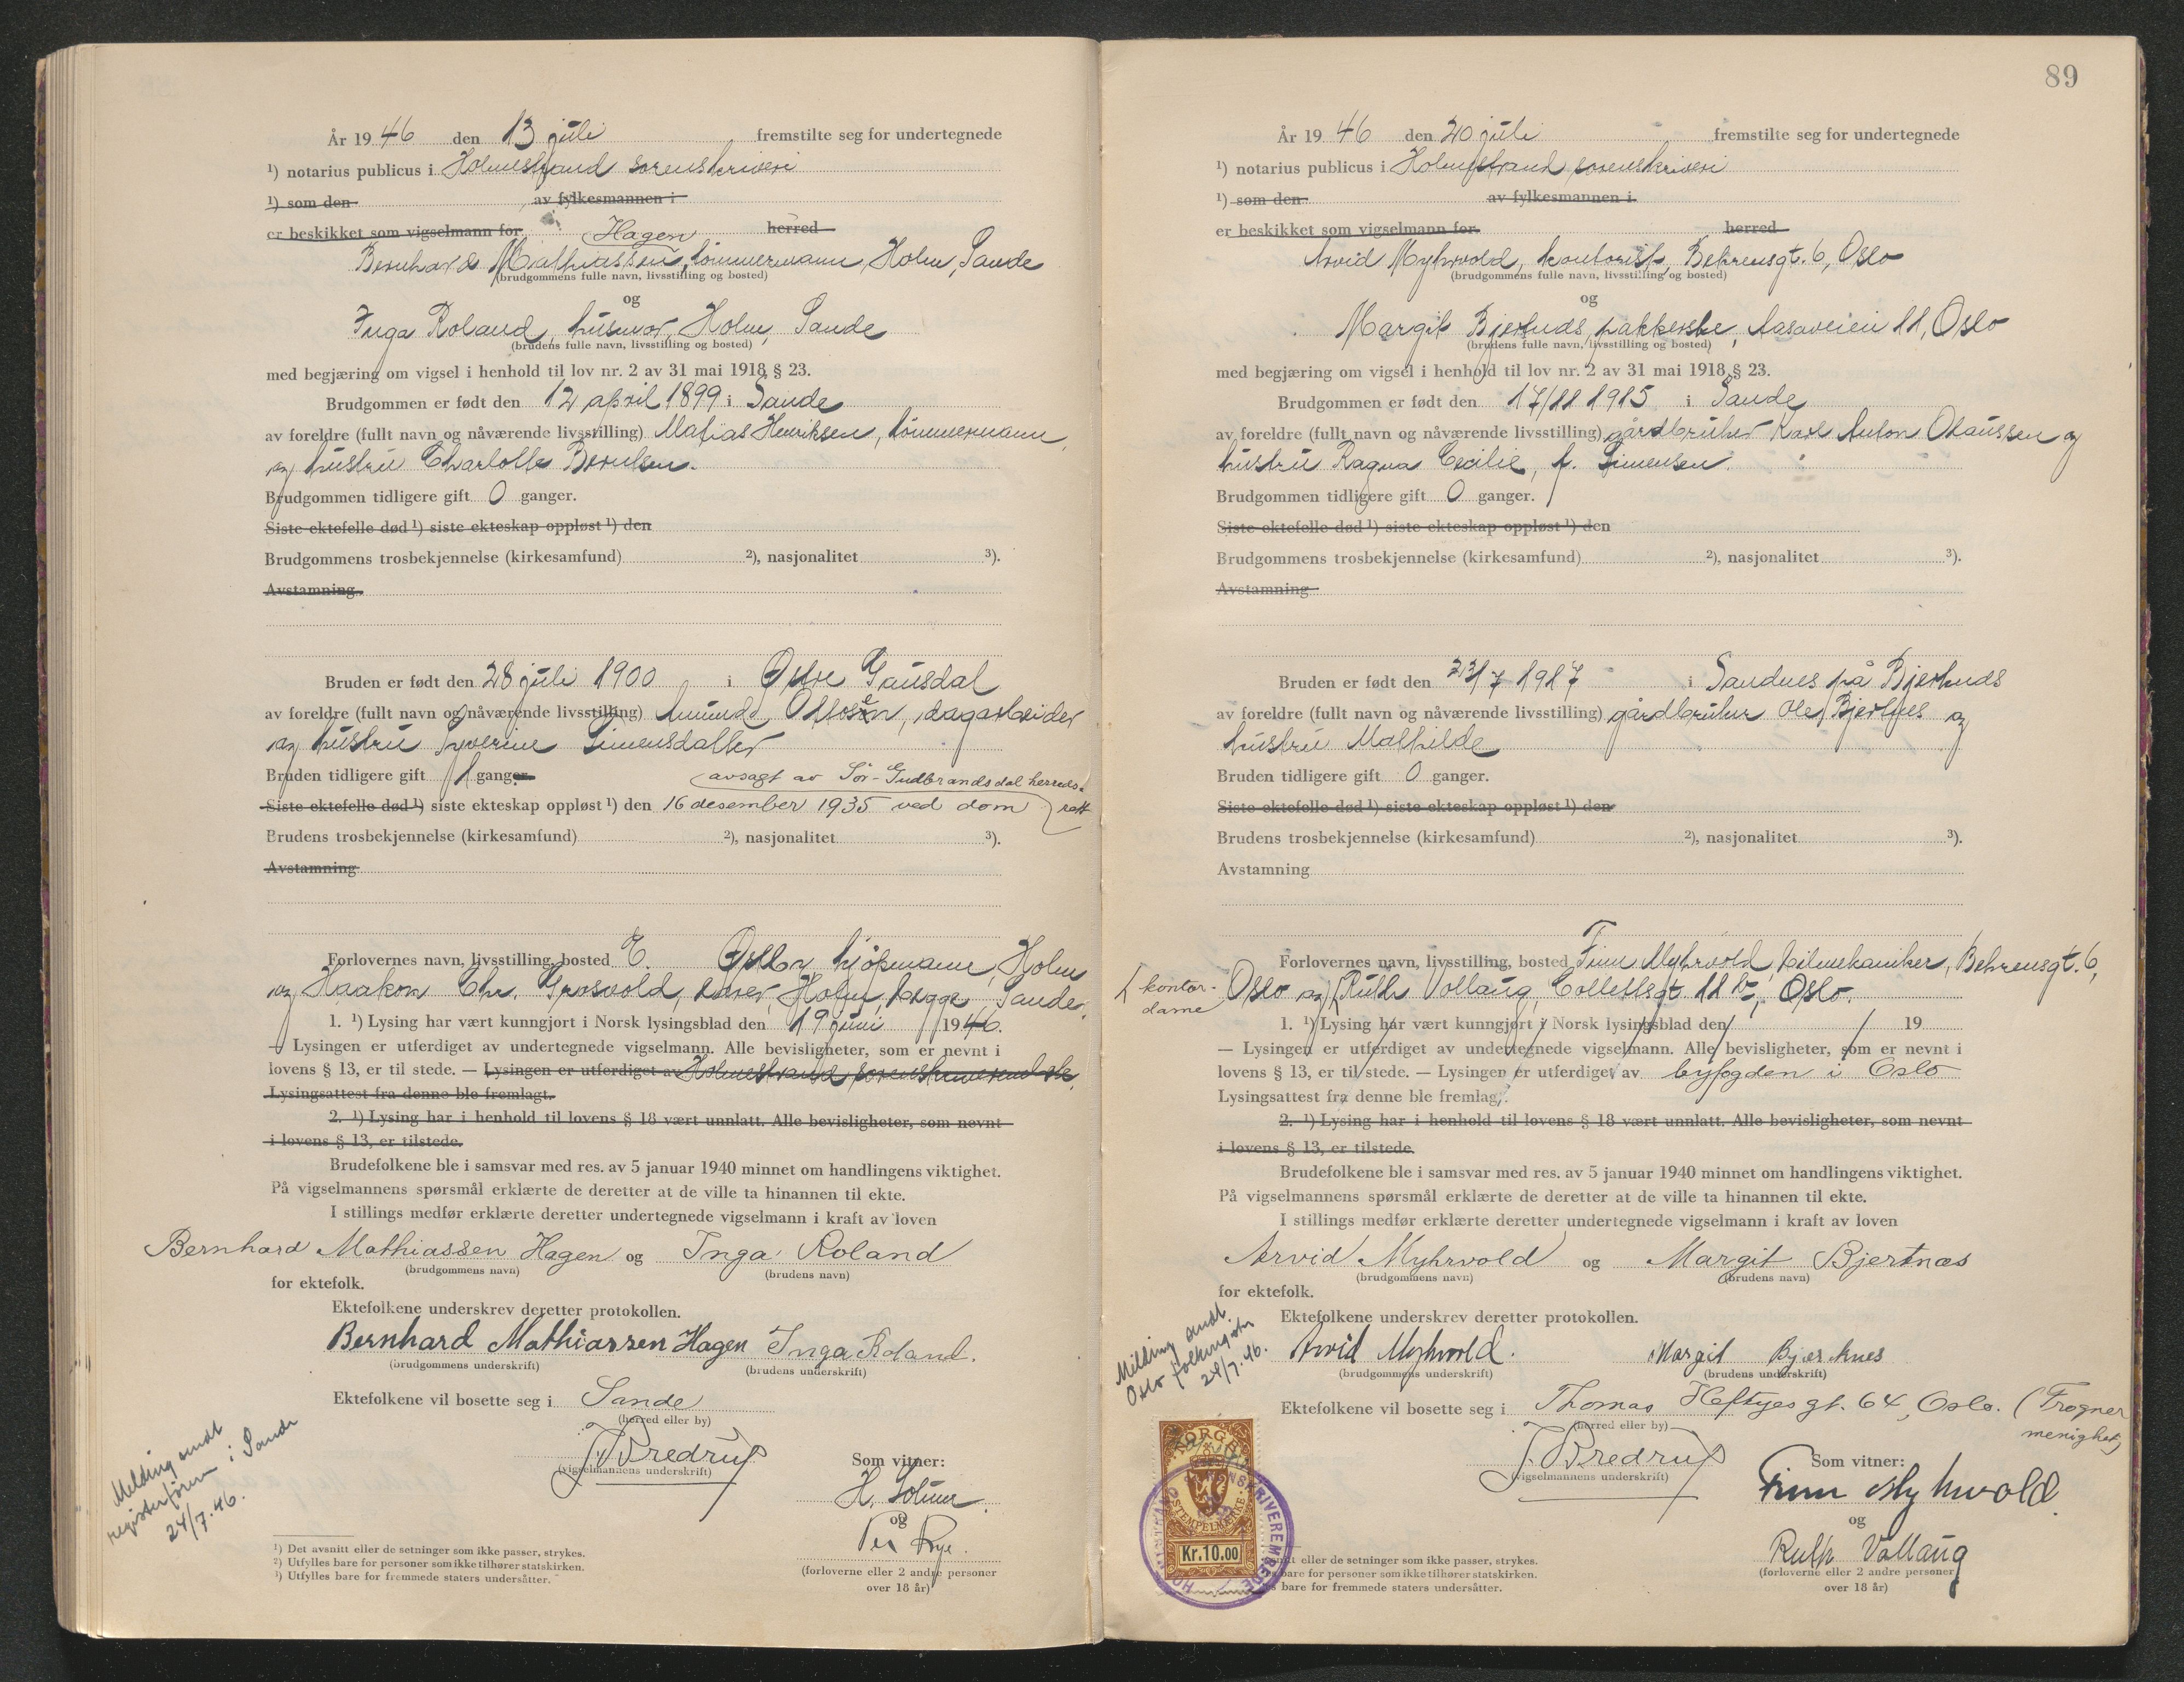 År 1946 den 13 juli fremstilte seg for undertegnede
¹) notarius publicus i Holmestrand sorenskriveri
¹) som den av fylkesmannen i
er beskikket som vigselmann for herred
Hagen
Bernhard Mathiassen, tømmermann, Holm, Sande
(brudgommens fulle navn, livsstilling og bosted)
og
Inga Roland, husmor, Holm, Sande
(brudens fulle navn, livsstilling og bosted)
med begjæring om vigsel i henhold til lov nr. 2 av 31 mai 1918 § 23.
Brudgommen er født den 12 april 1899 i Sande
av foreldre (fullt navn og nåværende livsstilling) Matias Henriksen, tømmermann
og hustru Charlotte Berntsen.
Brudgommen tidligere gift 0 ganger.
Siste ektefelle død ¹) siste ekteskap oppløst ¹) den
Brudgommens trosbekjennelse (kirkesamfund) ²), nasjonalitet ³).
Avstamning
Bruden er født den 28 juli 1900 i Østre Gausdal
av foreldre (fullt navn og nåværende livsstilling) Amund, dagarbeider
og hustru Syverine Simensdatter
Bruden tidligere gift 1 ganger
avsagt av Sør-Gudbrandsdal herreds-
Siste ektefelle død ¹) siste ekteskap oppløst ¹) den 16 desember 1935 ved dom rett
Brudens trosbekjennelse (kirkesamfund) ²), nasjonalitet ³).
Avstamning
Forlovernes navn, livsstilling, bosted E. Østby kjøpmann, Holm
og Haakon Chr. Grosvold, Holm, begge Sande.
1. ¹) Lysing har vært kunngjort i Norsk lysingsblad den 19 juni 1946.
— Lysingen er utferdiget av undertegnede vigselmann. Alle bevisligheter, som er nevnt i
lovens § 13, er til stede. — Lysingen er utferdiget av Holmestrand sorenskriverembede.
Lysingsattest fra denne ble fremlagt.
2. ¹) Lysing har i henhold til lovens § 18 vært unnlatt. Alle bevisligheter, som nevnt
i lovens § 13, er tilstede.
Brudefolkene ble i samsvar med res. av 5 januar 1940 minnet om handlingens viktighet.
På vigselmannens spørsmål erklærte de deretter at de ville ta hinannen til ekte.
I stillings medfør erklærte deretter undertegnede vigselmann i kraft av loven
Bernhard Mathiassen Hagen og Inga Roland
(brudgommens navn) (brudens navn)
for ektefolk.
Ektefolkene underskrev deretter protokollen.
Bernhard Mathiassen Hagen Inga Roland.
(brudgommens underskrift) (brudens underskrift)
Ektefolkene vil bosette seg i Sande
(herred eller by)
J. Bredrup
(vigselmannens underskrift)
Som vitner:
H. Solum
og
Per Rye.
(forloverne eller 2 andre personer
over 18 år)
Melding sendt
registerføreren i Sande
24/7.46.
¹) Det avsnitt eller de setninger som ikke passer, strykes.
²) Utfylles bare for personer som ikke tilhører statskirken.
³) Utfylles bare for fremmede staters undersåtter.
89
År 1946 den 20 juli fremstilte seg for undertegnede
¹) notarius publicus i Holmestrand sorenskriveri
¹) som den av fylkesmannen i
er beskikket som vigselmann for herred
Arvid Myhrvold, kontorist, Behrensgt. 6, Oslo
(brudgommens fulle navn, livsstilling og bosted)
og
Margit Bjertnæs pakkerske, Aasaveien 11, Oslo
(brudens fulle navn, livsstilling og bosted)
med begjæring om vigsel i henhold til lov nr. 2 av 31 mai 1918 § 23.
Brudgommen er født den 17/11 1915 i Sande
av foreldre (fullt navn og nåværende livsstilling) gårdbruker Karl Anton Olaussen og
hustru Ragna Cecilie, f. Simensen.
Brudgommen tidligere gift 0 ganger.
Siste ektefelle død ¹) siste ekteskap oppløst ¹) den
Brudgommens trosbekjennelse (kirkesamfund) ²), nasjonalitet ³).
Avstamning
Bruden er født den 23/7 1917 i Sandnes på Bjertnæs
av foreldre (fullt navn og nåværende livsstilling) gårdbruker Ole Bjertnes og
hustru Mathilde
Bruden tidligere gift 0 ganger.
Siste ektefelle død ¹) siste ekteskap oppløst ¹) den
Brudens trosbekjennelse (kirkesamfund) ²), nasjonalitet ³).
Avstamning
Forlovernes navn, livsstilling, bosted Finn Myhrvold, bilmekaniker, Behrensgt. 6,
kontor-
dame
Oslo og Ruth Vollaug, Collettsgt. 11 b, Oslo.
1. ¹) Lysing har vært kunngjort i Norsk lysingsblad den 19
— Lysingen er utferdiget av undertegnede vigselmann. Alle bevisligheter, som er nevnt i
lovens § 13, er til stede. — Lysingen er utferdiget av byfogden i Oslo
Lysingsattest fra denne ble fremlagt.
2. ¹) Lysing har i henhold til lovens § 18 vært unnlatt. Alle bevisligheter, som nevnt
i lovens § 13, er tilstede.
Brudefolkene ble i samsvar med res. av 5 januar 1940 minnet om handlingens viktighet.
På vigselmannens spørsmål erklærte de deretter at de ville ta hinannen til ekte.
I stillings medfør erklærte deretter undertegnede vigselmann i kraft av loven
Arvid Myhrvold og Margit Bjertnæs
(brudgommens navn) (brudens navn)
for ektefolk.
Ektefolkene underskrev deretter protokollen.
Arvid Myhrvold. Margit Bjertnes
(brudgommens underskrift) (brudens underskrift)
Ektefolkene vil bosette seg i Thomas Heftyes gt. 64, Oslo. (Frogner
menighet)
(herred eller by)
J. Bredrup
(vigselmannens underskrift)
Som vitner:
Finn Myhrvold
og
Ruth Vollaug
(forloverne eller 2 andre personer
over 18 år)
Melding sendt
Oslo folkeregister
24/7.46.
NORGE
STEMPELMERKE
Kr.10.00
HOLMESTRAND SORENSKRIVEREMBEDE
eller de setninger som ikke passer, strykes.
bare for personer som ikke tilhører statskirken.
bare for fremmede staters undersåtter.